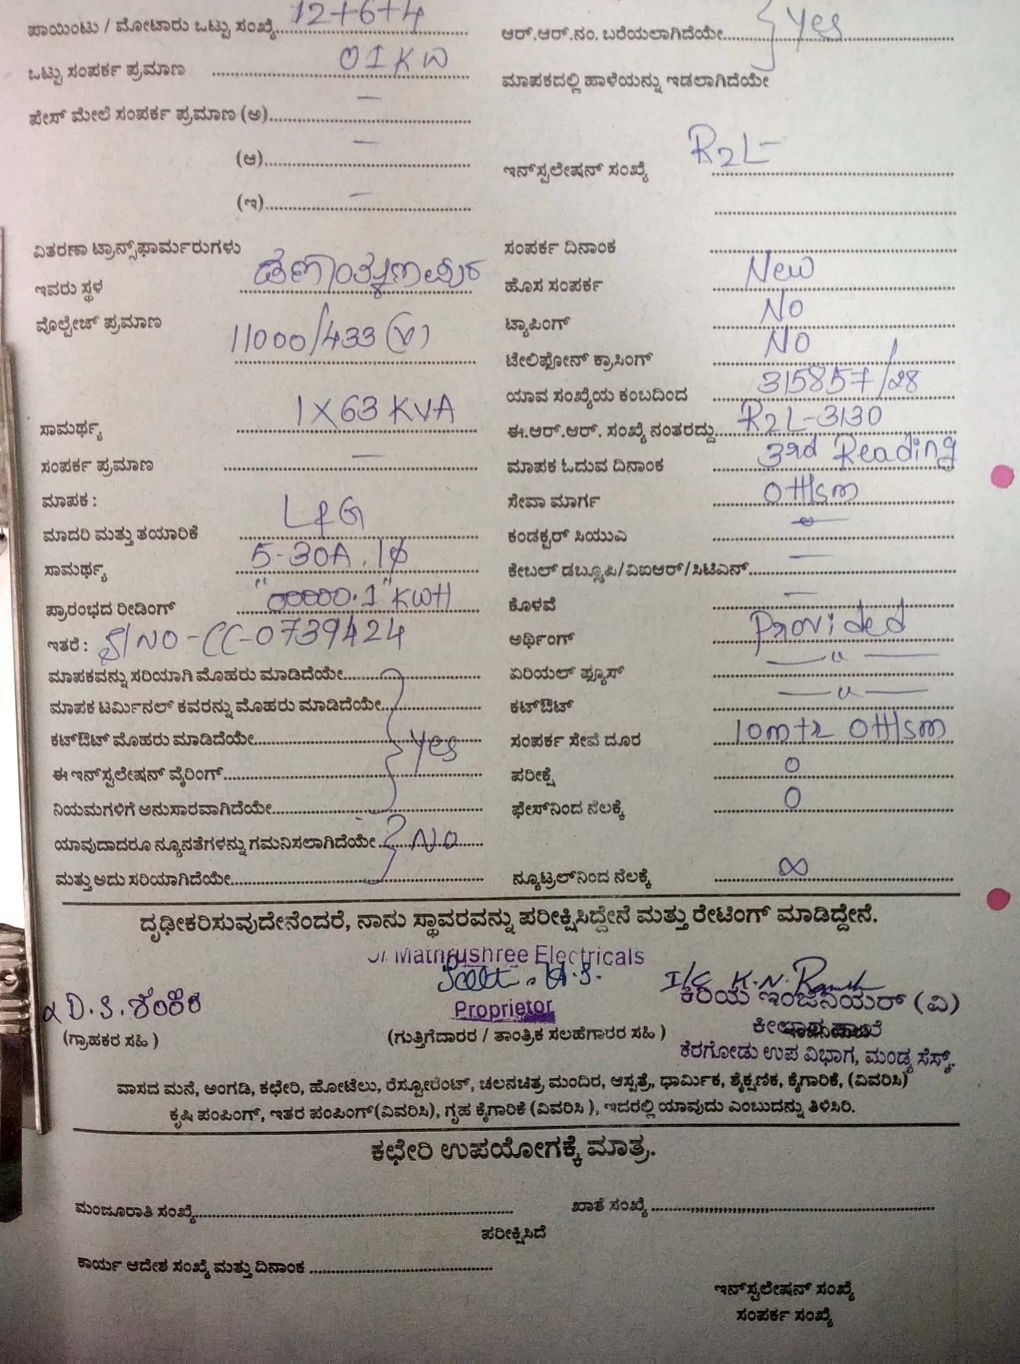 ಪಾಯಿಂಟು / ಮೋಟಾರು ಒಟ್ಟು ಸಂಖ್ಯೆ 12+6+4
ಒಟ್ಟು ಸಂಪರ್ಕ ಪ್ರಮಾಣ 01KW
ಪೇಸ್ ಮೇಲೆ ಸಂಪರ್ಕ ಪ್ರಮಾಣ (ಅ) —
(ಆ) —
(ಇ) —
ವಿತರಣಾ ಟ್ರಾನ್ಸ್‌ಫಾರ್ಮರುಗಳು
ಇವರು ಸ್ಥಳ
ವೊಲ್ಟೇಜ್ ಪ್ರಮಾಣ 11000/433 (V)
ಸಾಮರ್ಥ್ಯ 1X63 KVA
ಸಂಪರ್ಕ ಪ್ರಮಾಣ —
ಮಾಪಕ :
ಮಾದರಿ ಮತ್ತು ತಯಾರಿಕೆ L&G
ಸಾಮರ್ಥ್ಯ 5-30A, 1ϕ
ಪ್ರಾರಂಭದ ರೀಡಿಂಗ್ "00000.1" KWH
ಇತರೆ : S/NO-CC-0739424
ಮಾಪಕವನ್ನು ಸರಿಯಾಗಿ ಮೊಹರು ಮಾಡಿದೆಯೇ
ಮಾಪಕ ಟರ್ಮಿನಲ್ ಕವರನ್ನು ಮೊಹರು ಮಾಡಿದೆಯೇ
ಕಟ್‌ಔಟ್ ಮೊಹರು ಮಾಡಿದೆಯೇ Yes
ಈ ಇನ್‌ಸ್ಟಲೇಷನ್ ವೈರಿಂಗ್
ನಿಯಮಗಳಿಗೆ ಅನುಸಾರವಾಗಿದೆಯೇ
ಯಾವುದಾದರೂ ನ್ಯೂನತೆಗಳನ್ನು ಗಮನಿಸಲಾಗಿದೆಯೇ No
ಮತ್ತು ಅದು ಸರಿಯಾಗಿದೆಯೇ
ಆರ್.ಆರ್.ನಂ. ಬರೆಯಲಾಗಿದೆಯೇ Yes
ಮಾಪಕದಲ್ಲಿ ಹಾಳೆಯನ್ನು ಇಡಲಾಗಿದೆಯೇ
ಇನ್‌ಸ್ಟಲೇಷನ್ ಸಂಖ್ಯೆ R2L-
ಸಂಪರ್ಕ ದಿನಾಂಕ
ಹೊಸ ಸಂಪರ್ಕ New
ಟ್ಯಾಪಿಂಗ್ No
ಟೇಲಿಫೋನ್ ಕ್ರಾಸಿಂಗ್ No
ಯಾವ ಸಂಖ್ಯೆಯ ಕಂಬದಿಂದ 315857/28
ಈ.ಆರ್.ಆರ್. ಸಂಖ್ಯೆ ನಂತರದ್ದು R2L-3130
ಮಾಪಕ ಓದುವ ದಿನಾಂಕ 3rd Reading
ಸೇವಾ ಮಾರ್ಗ OH/sm
ಕಂಡಕ್ಟರ್ ಸಿಯುಎ
ಕೇಬಲ್ ಡಬ್ಲೂಪಿ/ವಿಐಆರ್/ಸಿಟಿಎನ್ —
ಕೊಳವೆ —
ಅರ್ಥಿಂಗ್ Provided
ಏರಿಯಲ್ ಫ್ಯೂಸ್ —"—
ಕಟ್‌ಔಟ್ —"—
ಸಂಪರ್ಕ ಸೇವೆ ದೂರ 10mtr OH/sm
ಪರೀಕ್ಷೆ 0
ಫೇಸ್‌ನಿಂದ ನೆಲಕ್ಕೆ 0
ನ್ಯೂಟ್ರಲ್‌ನಿಂದ ನೆಲಕ್ಕೆ ∞
ದೃಢೀಕರಿಸುವುದೇನೆಂದರೆ, ನಾನು ಸ್ಥಾವರವನ್ನು ಪರೀಕ್ಷಿಸಿದ್ದೇನೆ ಮತ್ತು ರೇಟಿಂಗ್ ಮಾಡಿದ್ದೇನೆ.
Mathrushree Electricals
Proprietor
D.S.
I/C K.N.
ಕಿರಿಯ ಇಂಜಿನಿಯರ್ (ವಿ)
ಕೀಲಾರ ಶಾಖೆ
ಕೆರಗೋಡು ಉಪ ವಿಭಾಗ, ಮಂಡ್ಯ ಸೆಸ್ಕ್.
(ಗ್ರಾಹಕರ ಸಹಿ )
(ಗುತ್ತಿಗೆದಾರರ / ತಾಂತ್ರಿಕ ಸಲಹೆಗಾರರ ಸಹಿ )
ವಾಸದ ಮನೆ, ಅಂಗಡಿ, ಕಛೇರಿ, ಹೋಟೆಲು, ರೆಸ್ಟೋರೆಂಟ್, ಚಲನಚಿತ್ರ ಮಂದಿರ, ಆಸ್ಪತ್ರೆ, ಧಾರ್ಮಿಕ, ಶೈಕ್ಷಣಿಕ, ಕೈಗಾರಿಕೆ, (ವಿವರಿಸಿ)
ಕೃಷಿ ಪಂಪಿಂಗ್, ಇತರ ಪಂಪಿಂಗ್(ವಿವರಿಸಿ), ಗೃಹ ಕೈಗಾರಿಕೆ (ವಿವರಿಸಿ ), ಇದರಲ್ಲಿ ಯಾವುದು ಎಂಬುದನ್ನು ತಿಳಿಸಿರಿ.
ಕಛೇರಿ ಉಪಯೋಗಕ್ಕೆ ಮಾತ್ರ.
ಮಂಜೂರಾತಿ ಸಂಖ್ಯೆ
ಖಾತೆ ಸಂಖ್ಯೆ
ಪರೀಕ್ಷಿಸಿದೆ
ಕಾರ್ಯ ಆದೇಶ ಸಂಖ್ಯೆ ಮತ್ತು ದಿನಾಂಕ
ಇನ್‌ಸ್ಟಲೇಷನ್ ಸಂಖ್ಯೆ
ಸಂಪರ್ಕ ಸಂಖ್ಯೆ